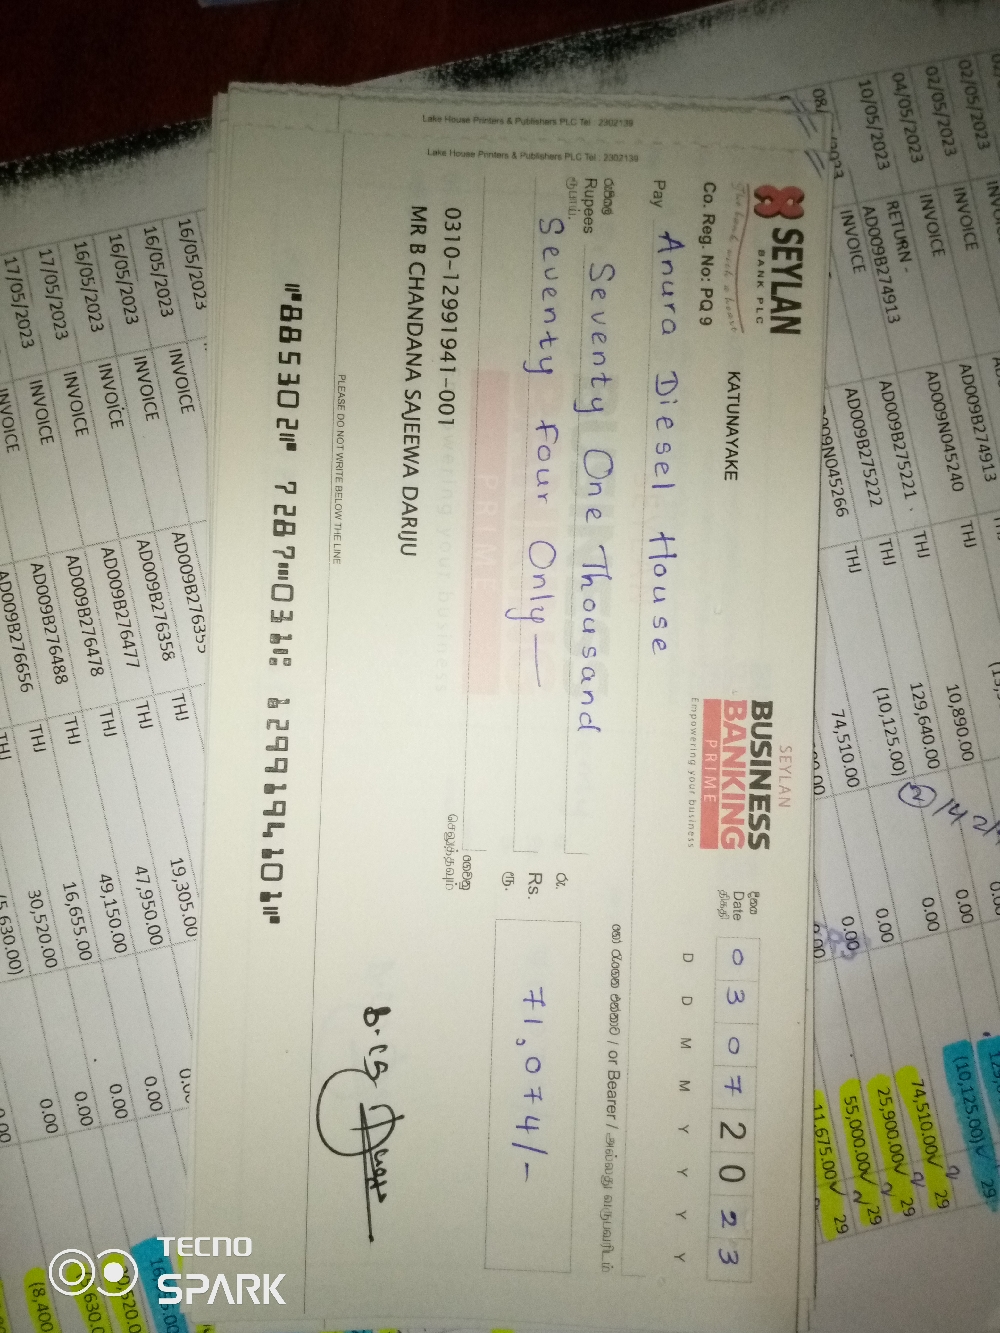 Lake House Printers & Publishers PLC Tel : 2302139
Lake House Printers & Publishers PLC Tel : 2302139
SEYLAN
BANK PLC
The bank with a heart
Co. Reg. No: PQ 9
KATUNAYAKE
SEYLAN
BUSINESS
BANKING
PRIME
Empowering your business
දිනය
Date
திகதி
0 3 0 7 2 0 2 3
D D M M Y Y Y Y
Pay Anura Diesel House
හෝ රැගෙන එන්නාට / or Bearer / அல்லது வருபவரிடம்
රුපියල්
Rupees Seventy One Thousand
ரூபாய்
Seventy four Only
රු.
Rs. 71,074/-
ரூ.
ගෙවනු
செலுத்தவும்
0310-12991941-001
MR B CHANDANA SAJEEWA DARIJU
PLEASE DO NOT WRITE BELOW THE LINE
⑈885302⑈ 7287⑉031⑆ 129919410 1⑈
02/05/2023 INVOICE AD009B274913 THJ 10,890.00 0.00
02/05/2023 INVOICE AD009N045240 THJ 129,640.00 0.00
04/05/2023 RETURN - AD009B274913 AD009B275221 THJ (10,125.00) 0.00
10/05/2023 INVOICE AD009B275222 THJ 74,510.00 0.00
(10,125.00) 29
74,510.00 29
25,900.00 29
55,000.00 29
11,675.00 29
16/05/2023 INVOICE AD009B276355 THJ 19,305.00
16/05/2023 INVOICE AD009B276358 THJ 47,950.00 0.00
16/05/2023 INVOICE AD009B276477 THJ 49,150.00 0.00
16/05/2023 INVOICE AD009B276478 THJ 16,655.00 0.00
17/05/2023 INVOICE AD009B276488 THJ 30,520.00 0.00
17/05/2023 INVOICE AD009B276656 THJ
TECNO
SPARK